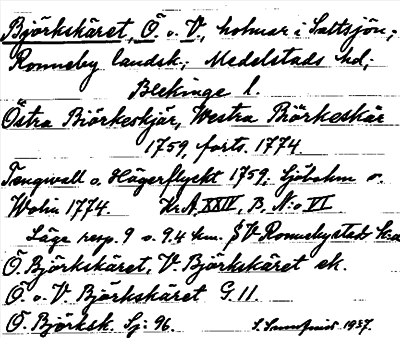 Björkskäret, Ö. o. V., holmar i Saltsjön;
Ronneby landsk.; Medelstads hd;
Blekinge l.
Östra Biörkeskjär, Westra Biörkeskär
1759, forts. 1774
Tengwall o. Hägerflyckt 1759. Sjöholm o.
Wolin 1774. Kr. A. XXIV, B. N:o VI
Läge resp. 9 o. 9.4 km. SV Ronnebystads K:a
Ö. Björkskäret, V. Björkskäret ek.
Ö. o. V. Björkskäret G. 11.
Ö. Björksk. Sj: 96.
1937.